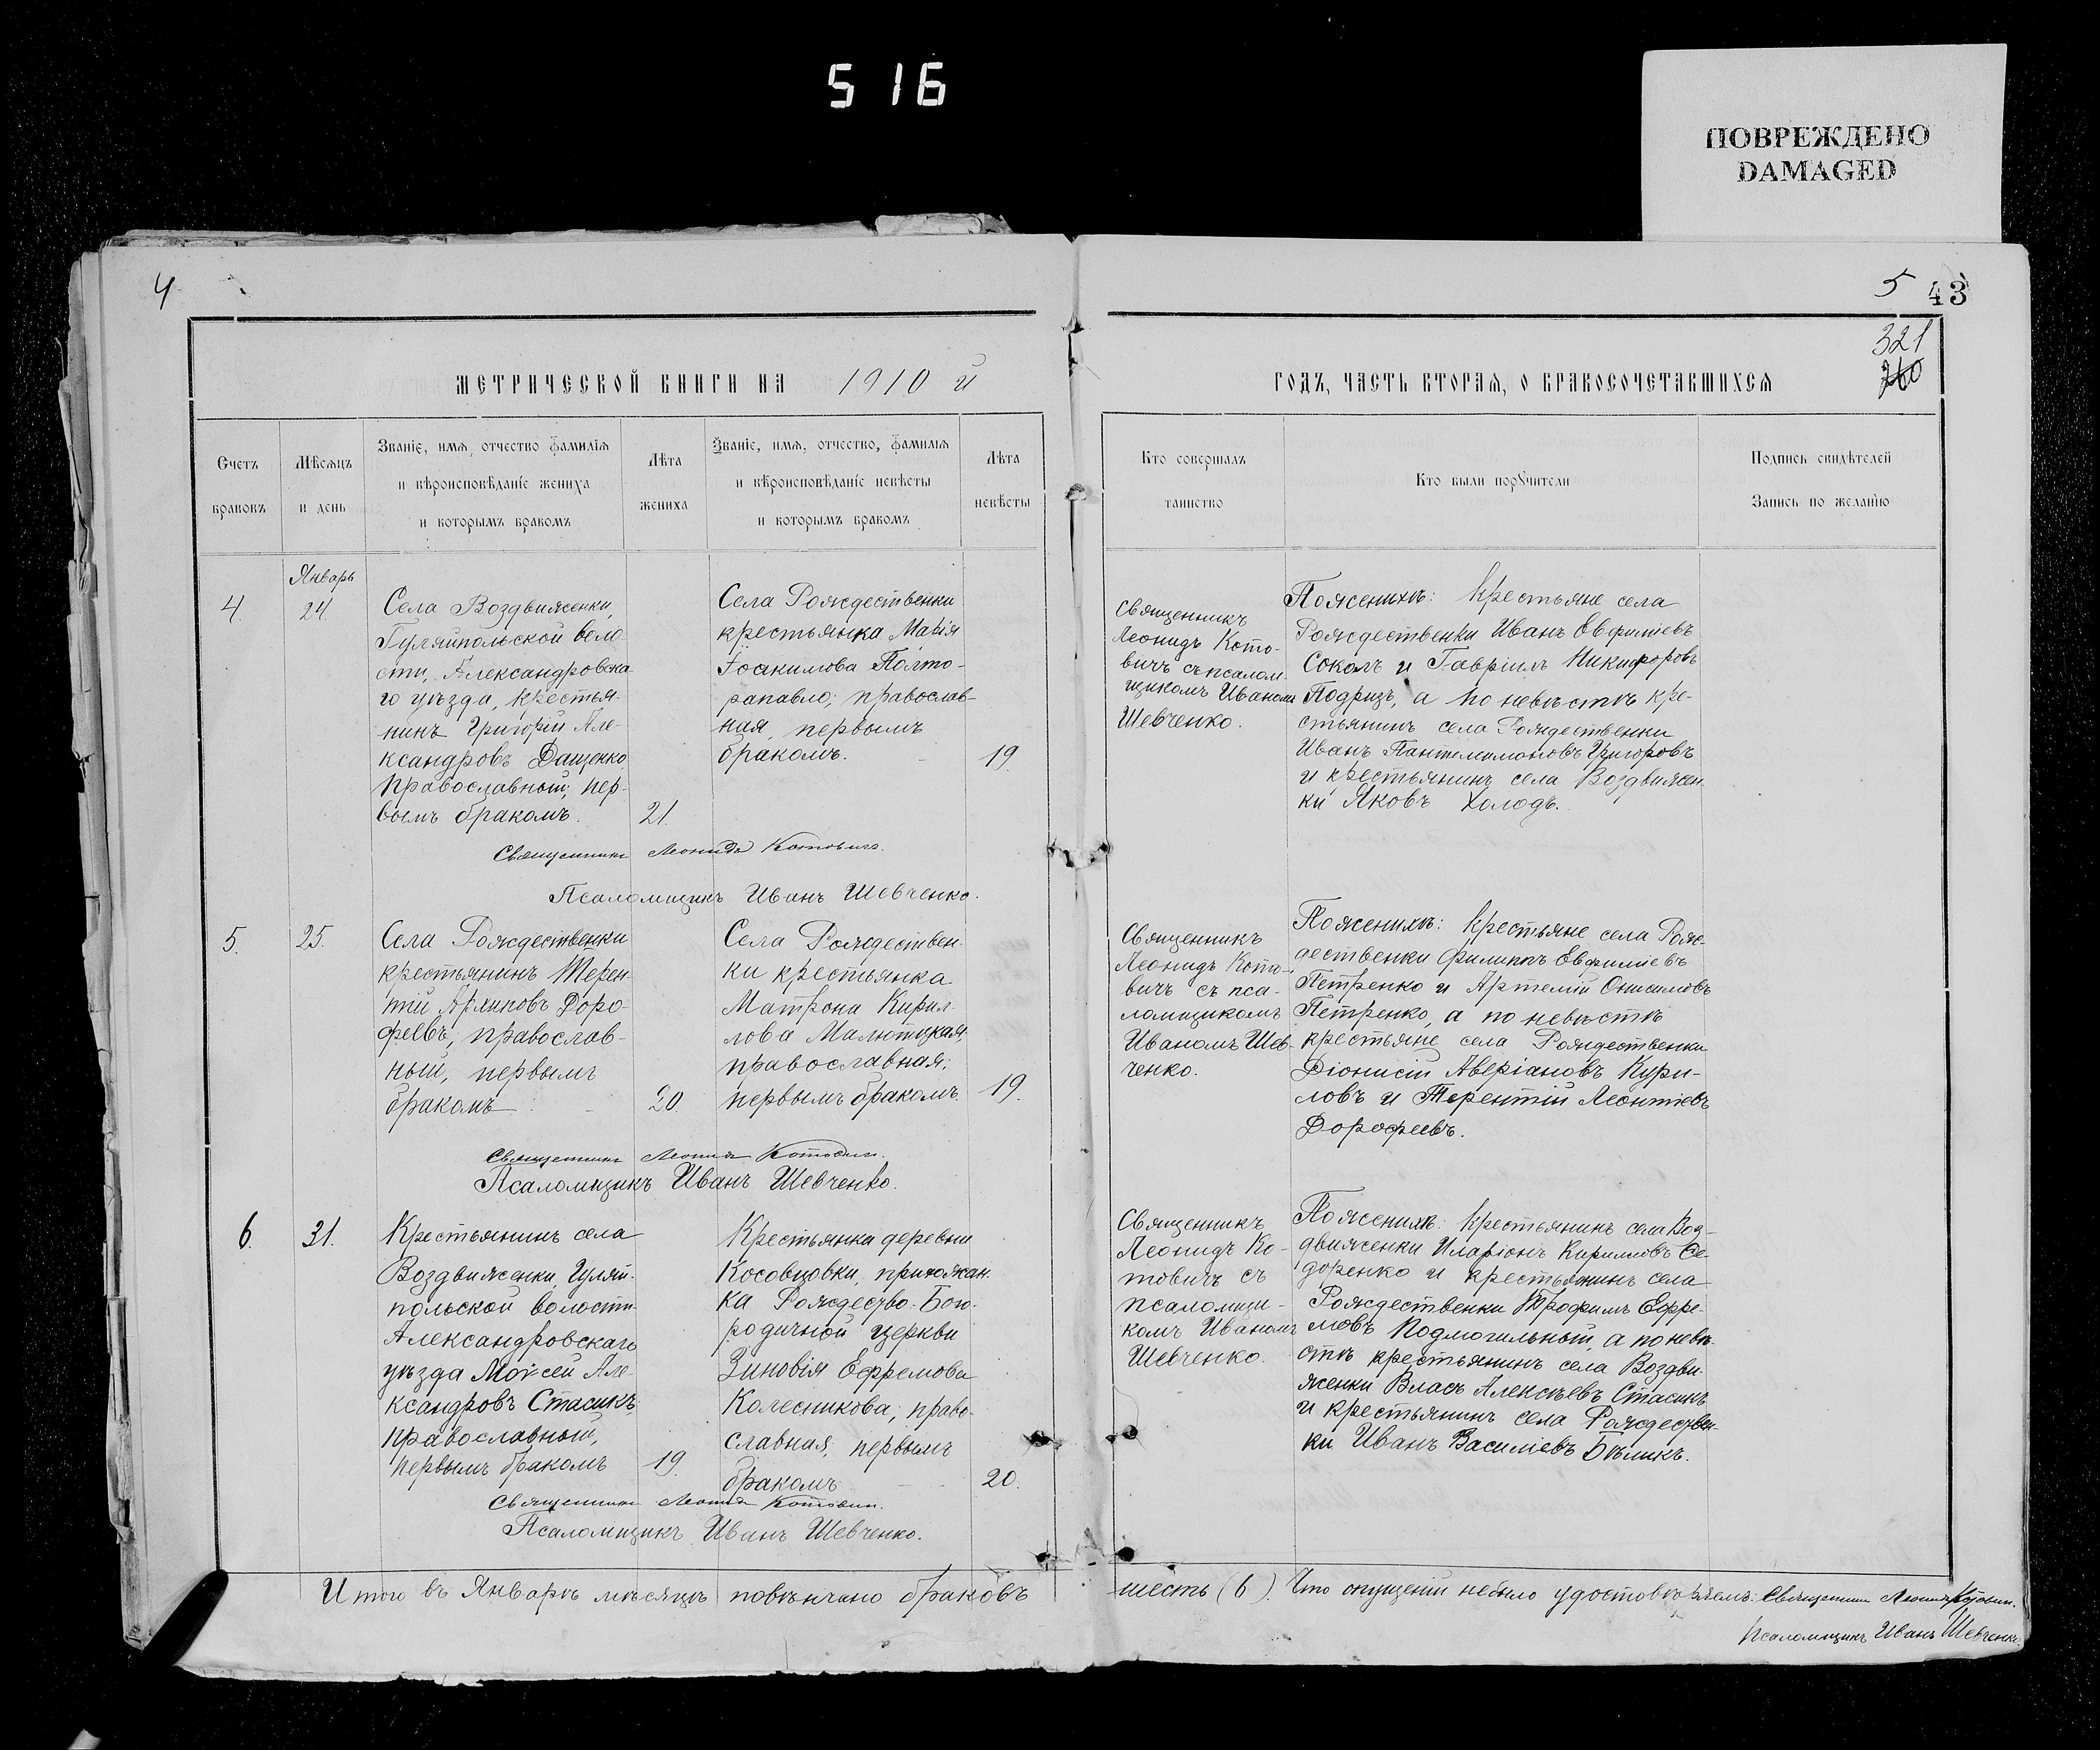 516
ПОВРЕЖДЕНО
DAMAGED
4
5 43
321
260
МЕТРИЧЕСКОЙ КНИГИ НА 1910 й
ГОДЪ, ЧАСТЬ ВТОРАЯ, О БРАКОСОЧЕТАВШИХСЯ
Счетъ
браковъ
Мѣсяцъ
и день
Званіе, имя, отчество фамилія
и вѣроисповѣданіе жениха
и которымъ бракомъ
Лѣта
жениха
Званіе, имя, отчество, фамилія
и вѣроисповѣданіе невѣсты
и которымъ бракомъ
Лѣта
невѣсты
Кто совершалъ
таинство
Кто были поручители
Подпись свидѣтелей
Запись по желанію
4.
Январь
24.
Села Воздвиженки,
Гуляйпольской воло
сти, Александровска-
го уѣзда, крестья-
нинъ Григорій Але-
ксандровъ Дащенко,
православный; пер-
вымъ бракомъ.
21.
Села Рождественки
крестьянка Марія
Іоакимова Полто-
рапавло; православ-
ная, первымъ
бракомъ.
19.
Священникъ
Леонидъ Кото-
вичъ съ псалом-
щикомъ Иваномъ
Шевченко.
По женихѣ: крестьяне села
Рождественки Иванъ Евфиміевъ
Соколъ и Гавріилъ Никифоровъ
Подризъ, а по невѣстѣ кре-
стьянинъ села Рождественки
Иванъ Пантелимоновъ Григоровъ
и крестьянинъ села Воздвижен
ки Яковъ Холодъ.
Священникъ Леонидъ Котовичъ.
Псаломщикъ Иванъ Шевченко.
5.
25.
Села Рождественки
крестьянинъ Терен-
тій Архиповъ Доро-
феевъ; православ-
ный, первымъ
бракомъ
20.
Села Рождествен-
ки крестьянка
Матрона Кирил-
лова Малютицкая,
православная;
первымъ бракомъ.
19.
Священникъ
Леонидъ Кото-
вичъ съ пса-
ломщикомъ
Иваномъ Шев-
ченко.
По женихѣ: крестьяне села Рож-
дественки Филиппъ Евфиміевъ
Петренко и Артемій Онисимовъ
Петренко, а по невѣстѣ
крестьяне села Рождественки
Діонисій Аверіановъ Кури-
ловъ и Терентій Леонтіевъ
Дорофеевъ.
Священникъ Леонидъ Котовичъ.
Псаломщикъ Иванъ Шевченко.
6.
31.
Крестьянинъ села
Воздвиженки, Гуляй-
польской волости
Александровскаго
уѣзда Моѵсей Але-
ксандровъ Стасикъ,
православный,
первымъ бракомъ
19.
Крестьянка деревни
Косовцовки, прихожан-
ка Рождество-Бого-
родичной церкви
Зиновія Ефремова
Колесникова; право-
славная, первымъ
бракомъ
20.
Священникъ
Леонидъ Ко-
товичъ съ
псаломщи-
комъ Иваномъ
Шевченко.
По женихѣ: крестьянинъ села Воз-
движенки Иларіонъ Кирилловъ Се-
доренко и крестьянинъ села
Рождественки Трофимъ Ефре-
мовъ Подмогильный, а по невѣ-
стѣ крестьянинъ села Воздви-
женки Власъ Алексѣевъ Стасикъ
и крестьянинъ села Рождествен-
ки Иванъ Василіевъ Бѣликъ.
Священникъ Леонидъ Котовичъ.
Псаломщикъ Иванъ Шевченко.
Итого въ Январѣ мѣсяцѣ повѣнчано браковъ шесть (6). Что опущеній не было удостовѣряемъ: Священникъ Леонидъ Котовичъ.
Псаломщикъ Иванъ Шевченко.